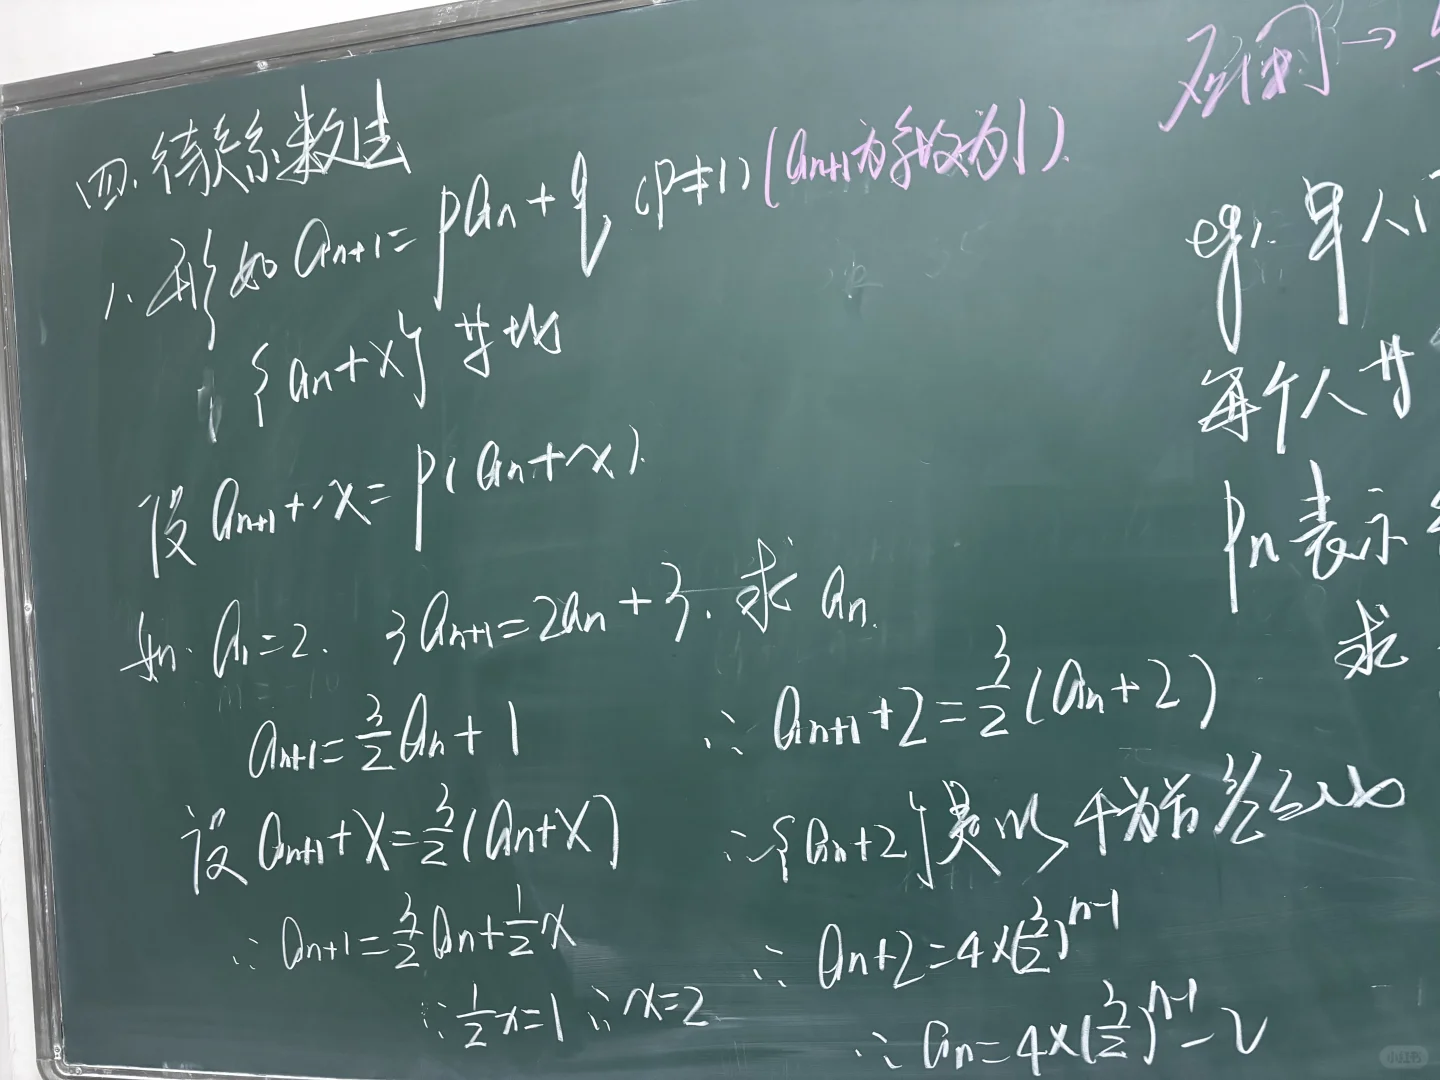 四.待定系数法
1.形如 an+1=pan+q (p≠1)(an+1为系数为1).
{an+x}等比
设 an+1+x=p(an+x).
如. a1=2. 3an+1=2an+3. 求 an.
an+1=3/2an+1
设 an+1+x=3/2(an+x)
∴ an+1=3/2an+1/2x
∴ 1/2x=1 ∴ x=2
∴ an+1+2=3/2(an+2)
∴{an+2}是以4为首 3/2公比
∴ an+2=4×(3/2)^n-1
∴ an=4×(3/2)^n-1-2
应用→
eg1. 甲人
每个人
pn表示
求
小红书